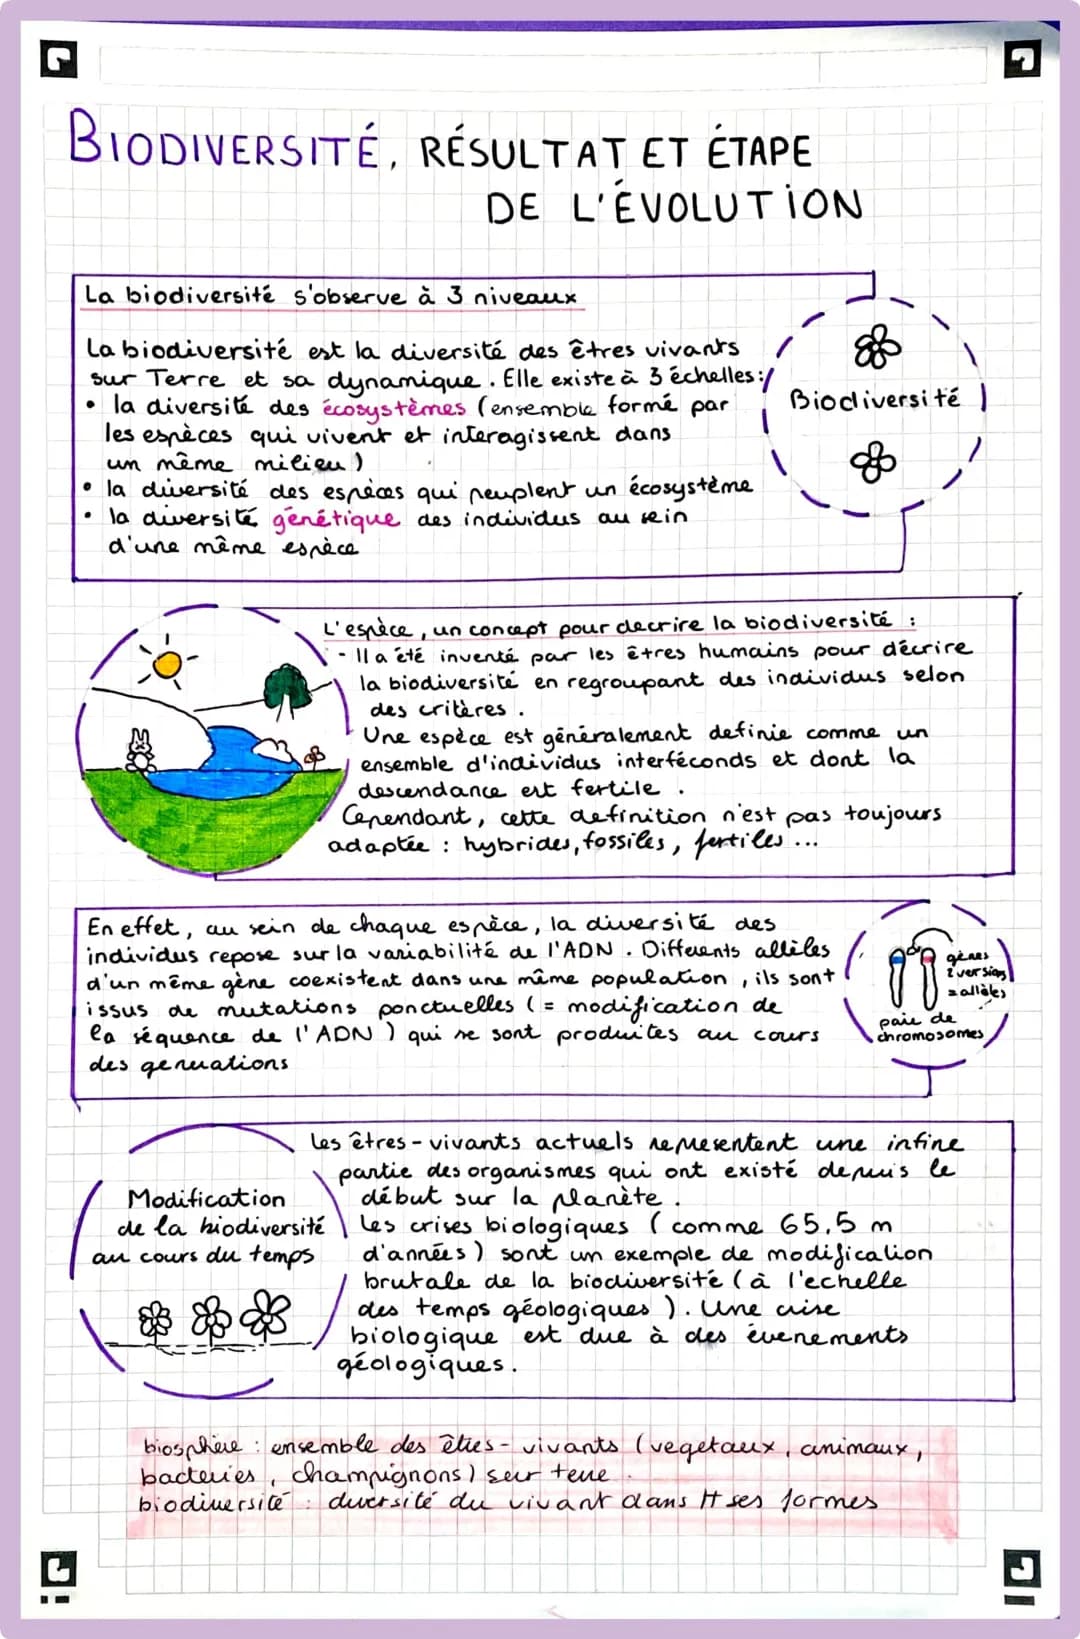 BIODIVERSITÉ, RÉSULTAT ET ÉTAPE
DE L'ÉVOLUTION
La biodiversité s'observe à 3 niveaux
La biodiversité est la diversité des êtres vivants
sur Terre et sa dynamique. Elle existe à 3 échelles:
• la diversité des écosystèmes (ensemble formé par
les espèces qui vivent et interagissent dans
un même milieu)
• la diversité des espèces qui peuplent un écosystème
• la diversité génétique des individus au sein
d'une même espèce
Biodiversité
L'espèce, un concept pour decrire la biodiversité :
- Il a été inventé par les êtres humains pour décrire
la biodiversité en regroupant des individus selon
des critères.
Une espèce est généralement definie comme un
ensemble d'individus interféconds et dont la
descendance est fertile.
Cependant, cette definition n'est pas toujours
adaptée : hybrides, fossiles, fertiles...
En effet, au sein de chaque espèce, la diversité des
individus repose sur la variabilité de l'ADN. Differents allèles
d'un même gène coexistent dans une même population, ils sont
issus de mutations ponctuelles (= modification de
la séquence de l'ADN) qui se sont produites au cours
des generations
gènes
2 versions
= allèles
paire de
chromosomes
Modification
de la biodiversité
au cours du temps
Les êtres-vivants actuels representent une infine
partie des organismes qui ont existé depuis le
début sur la planète.
Les crises biologiques (comme 65,5 m
d'années) sont un exemple de modification
brutale de la biodiversité (à l'echelle
des temps géologiques). Une crise
biologique est due à des évenements
géologiques.
biosphère : ensemble des êtres-vivants (vegetaux, animaux,
bacteries, champignons) sur terre
biodiversité : diversité du vivant dans tt ses formes